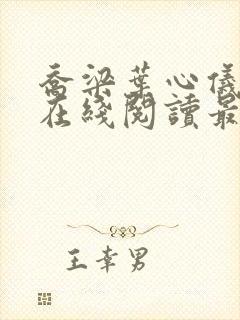 喬梁葉心儀
在綫閱讀最
王幸男